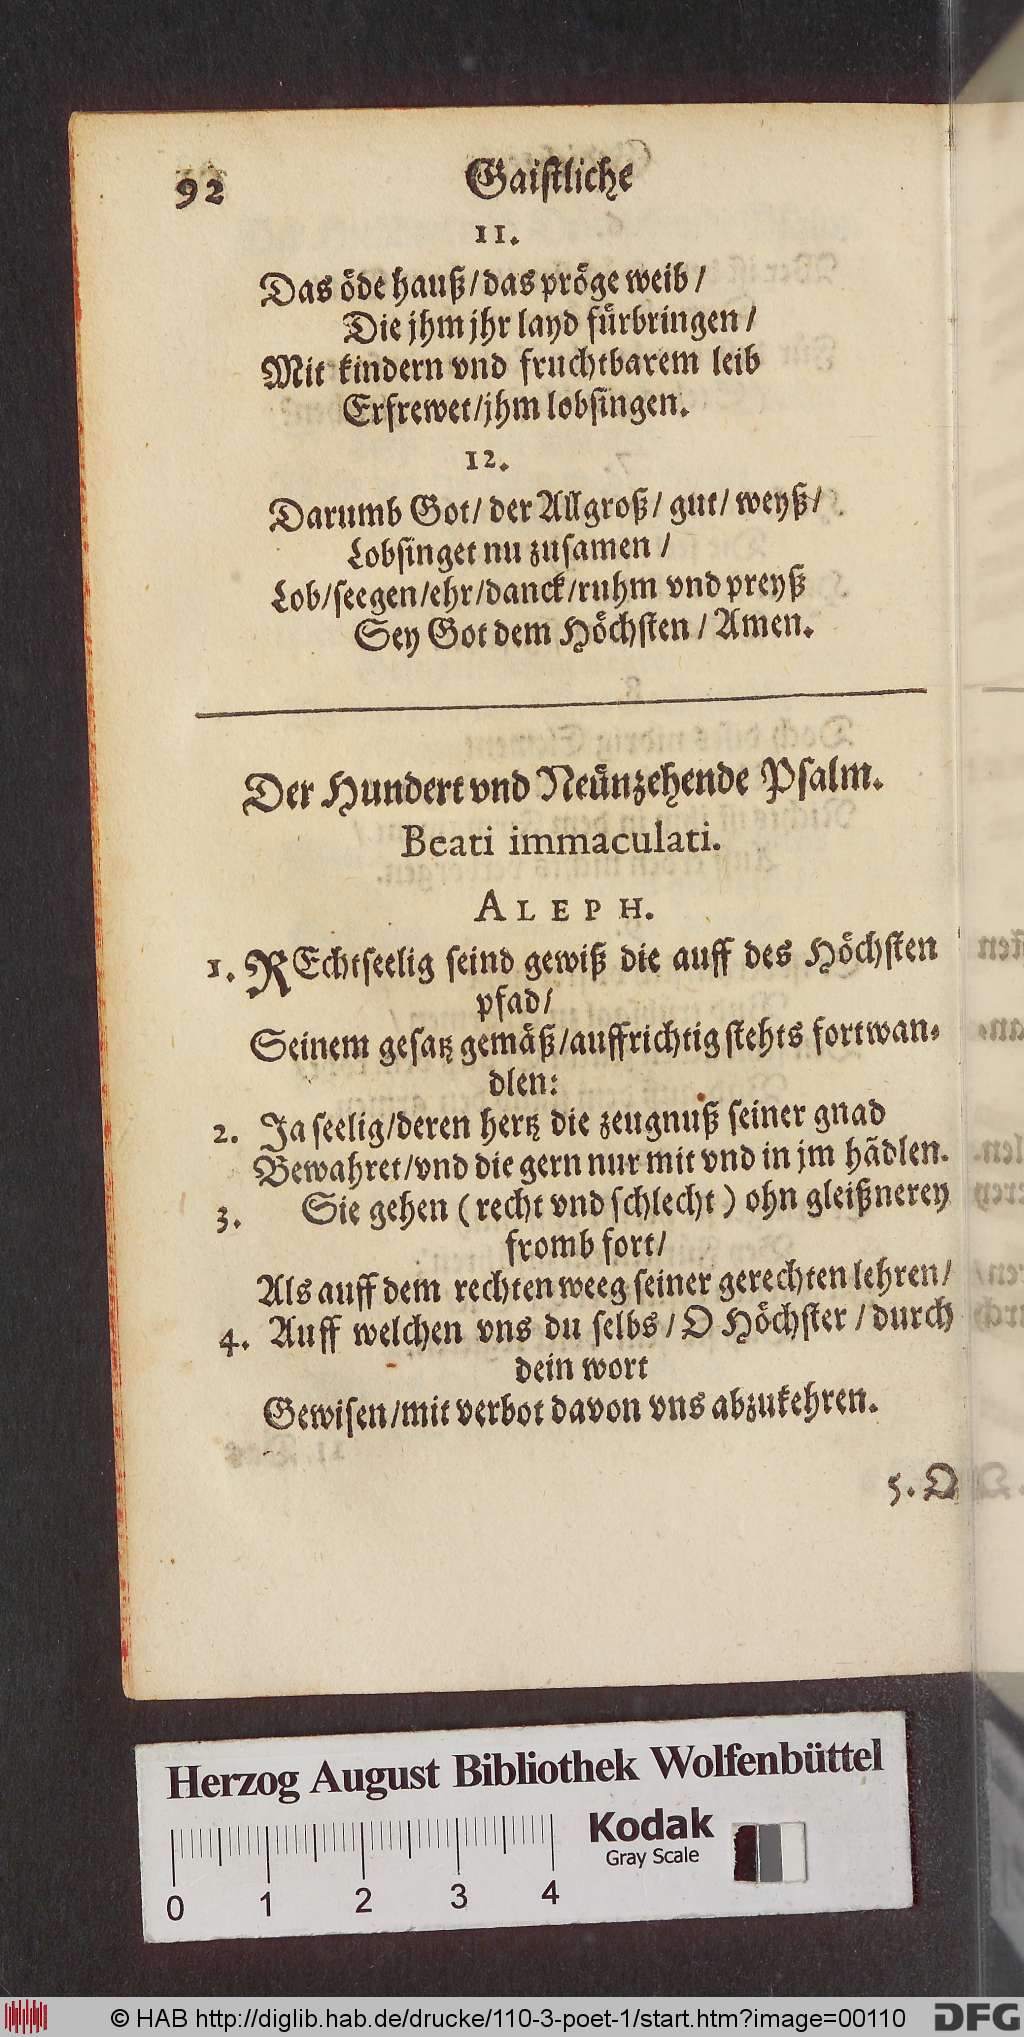 92 Gaiſtliche
11.
Das öde hauß/das pröge weib/
Die jhm jhr layd fürbringen/
Mit kindern vnd fruchtbarem leib
Erfrewet/jhm lobſingen.
12.
Darumb Got/ der Allgroß/ gut/ weyß/
Lobſinget nu zuſamen/
Lob/ſeegen/ehr/danck/ruhm vnd preyß
Sey Got dem Höchſten/ Amen.
Der Hundert vnd Neünzehende Pſalm.
Beati immaculati.
ALEPH.
1. REchtſeelig ſeind gewiß die auff des Höchſten
pfad/
Seinem geſatz gemäß/auffrichtig ſtehts fortwan⸗
dlen:
2. Ja ſeelig/deren hertz die zeugnuß ſeiner gnad
Bewahret/vnd die gern nur mit vnd in jm hãdlen.
3. Sie gehen (recht vnd ſchlecht) ohn gleißnerey
fromb fort/
Als auff dem rechten weeg ſeiner gerechten lehren/
4. Auff welchen vns du ſelbs/ O Höchſter/durch
dein wort
Gewiſen/mit verbot davon vns abzukehren.
5. O
Herzog August Bibliothek Wolfenbüttel
Kodak
Gray Scale
0 1 2 3 4
© HAB http://diglib.hab.de/drucke/110-3-poet-1/start.htm?image=00110
DFG